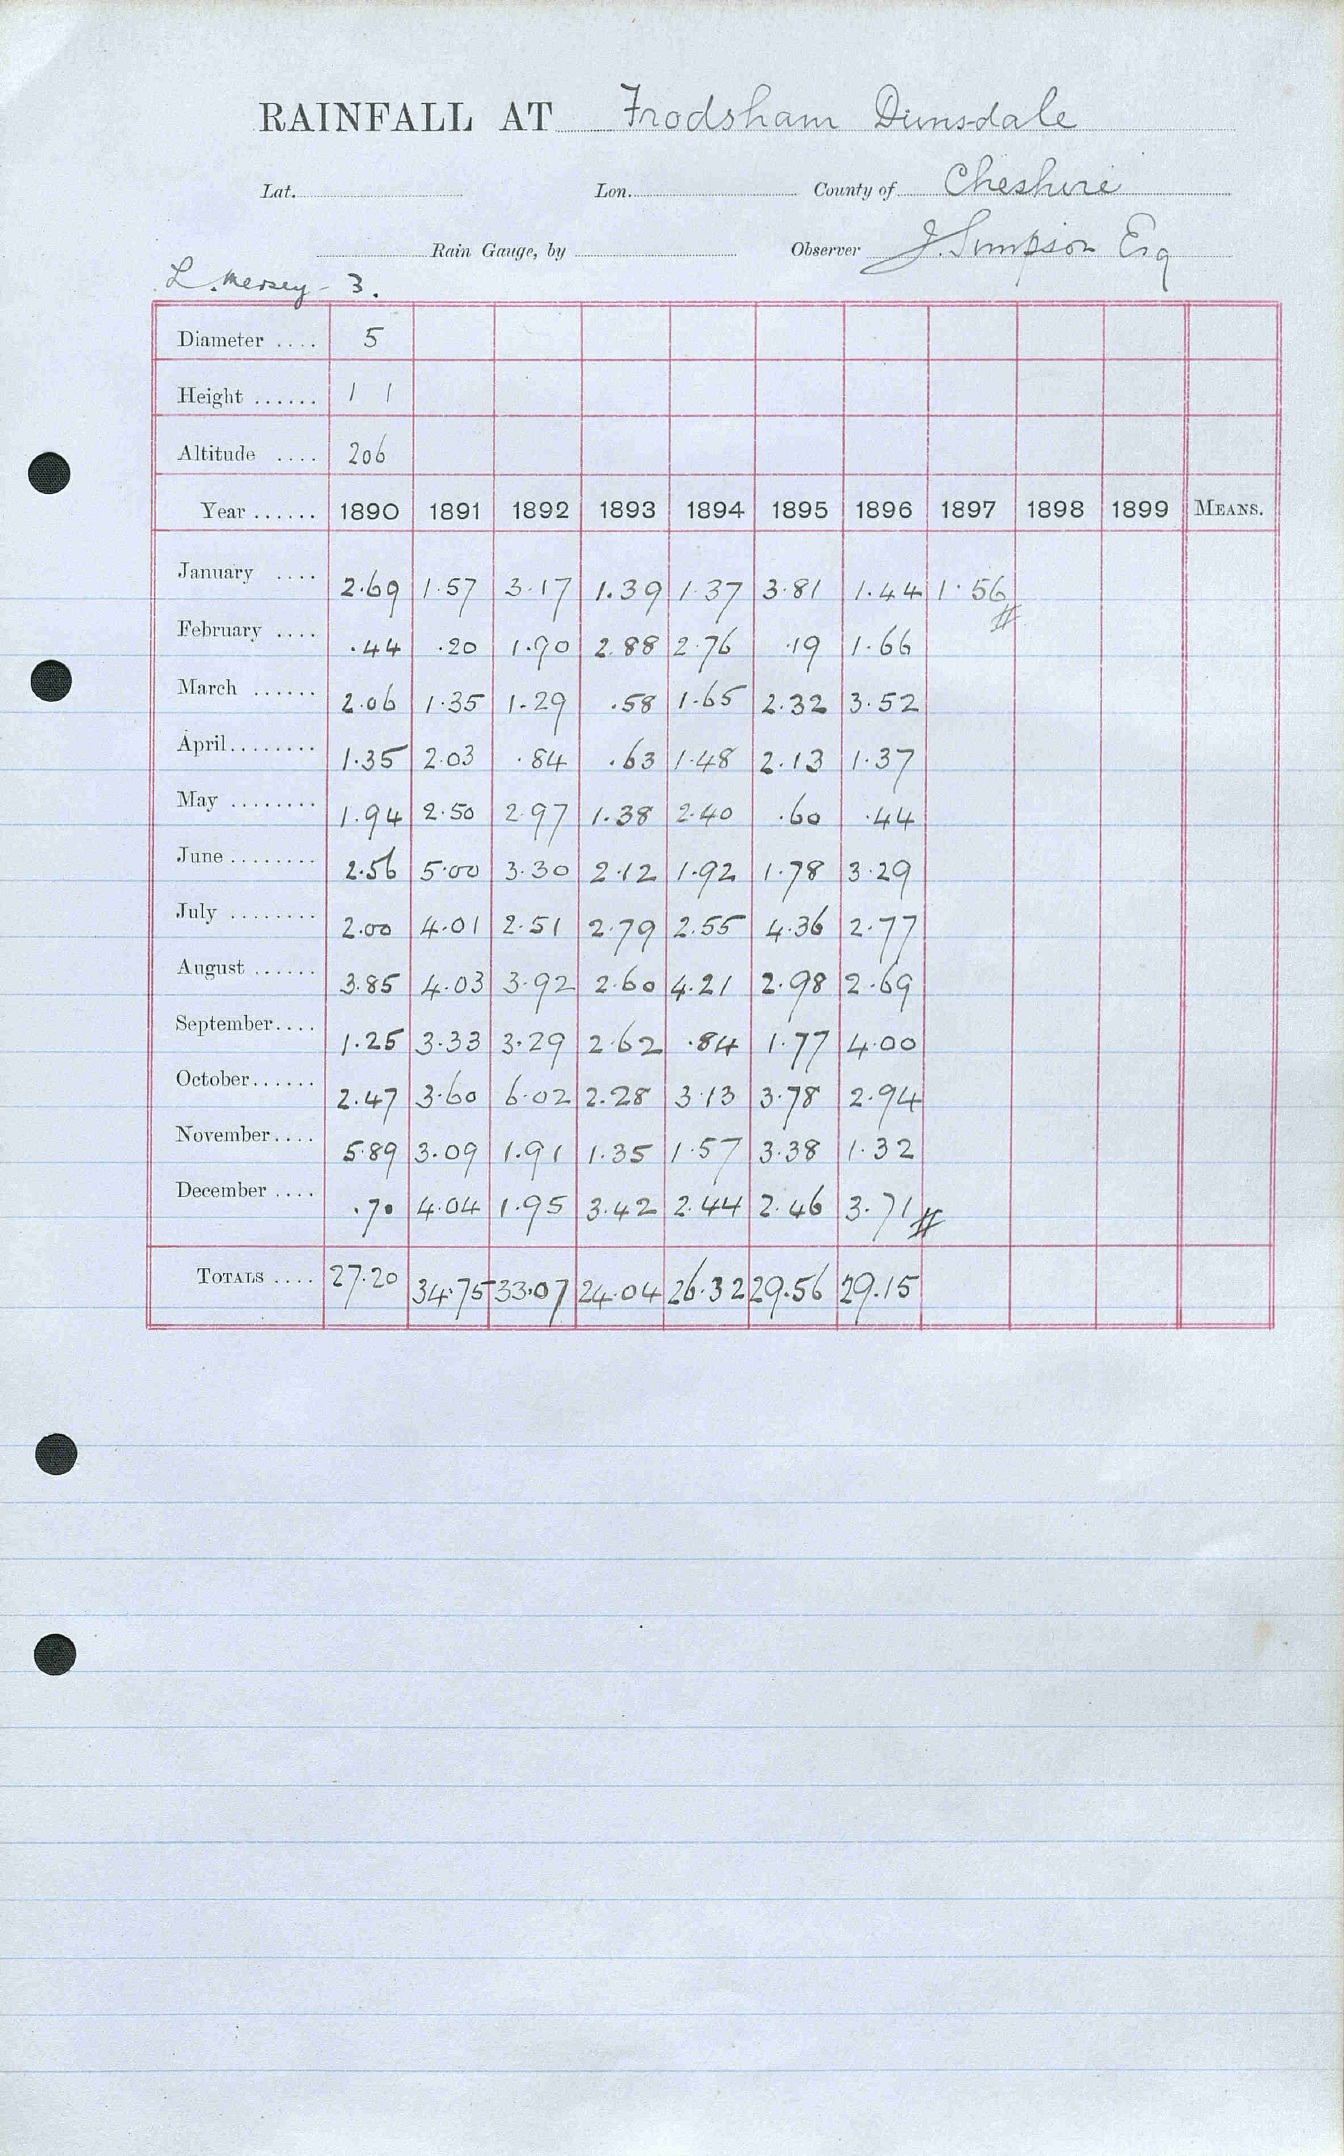 RAINFALL AT Frodsham Dunsdale
Lat. Lon. County of Cheshire
Rain Gauge, by Observer J. Simpson Esq
L. Mersey - 3.
Diameter .... 5
Height ...... 1 1
Altitude .... 206
Year ...... 1890 1891 1892 1893 1894 1895 1896 1897 1898 1899 MEANS.
January .... 2.69 1.57 3.17 1.39 1.37 3.81 1.44 1.56 #
February .... .44 .20 1.90 2.88 2.76 .19 1.66
March ...... 2.06 1.35 1.29 .58 1.65 2.32 3.52
April........ 1.35 2.03 .84 .63 1.48 2.13 1.37
May ........ 1.94 2.50 2.97 1.38 2.40 .60 .44
June ........ 2.56 5.00 3.30 2.12 1.92 1.78 3.29
July ........ 2.00 4.01 2.51 2.79 2.55 4.36 2.77
August ...... 3.85 4.03 3.92 2.60 4.21 2.98 2.69
September.... 1.25 3.33 3.29 2.62 .84 1.77 4.00
October...... 2.47 3.60 6.02 2.28 3.13 3.78 2.94
November.... 5.89 3.09 1.91 1.35 1.57 3.38 1.32
December .... .70 4.04 1.95 3.42 2.44 2.46 3.71 #
TOTALS .... 27.20 34.75 33.07 24.04 26.32 29.56 29.15